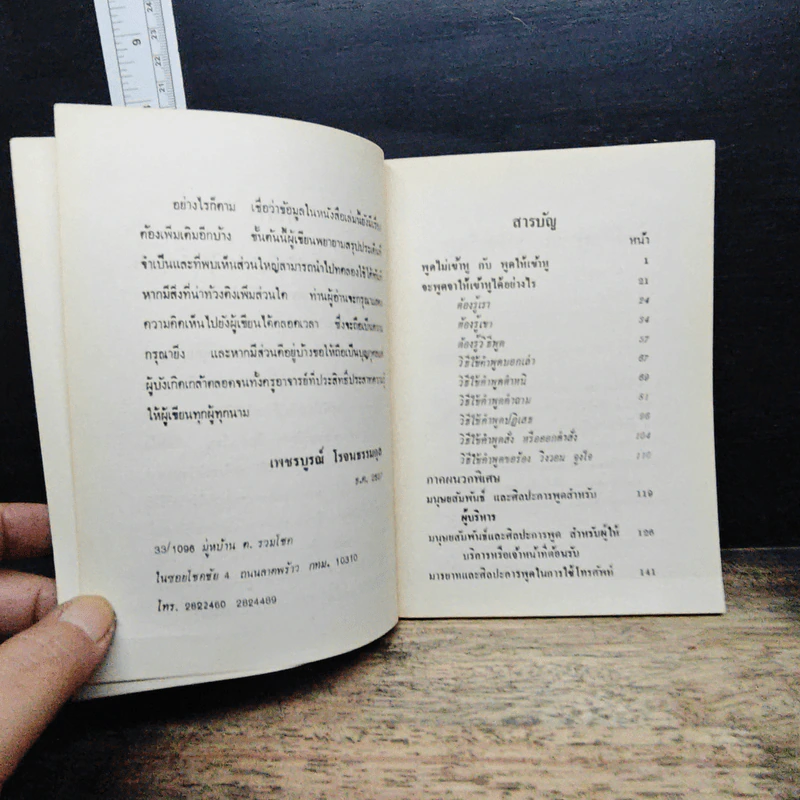 24
23
9
22
21
อย่างไรก็ตาม เชื่อว่าข้อมูลในหนังสือเล่มนี้ยังมี
ต้องเพิ่มเติมอีกบ้าง ชั้นต้นนี้ผู้เขียนพยายามสรุปประเด็นที่
จำเป็นและที่พบเห็นส่วนใหญ่สามารถนำไปทดลองใช้ได้ทันที
หากมีสิ่งที่น่าท้วงติงเพิ่มส่วนใด ท่านผู้อ่านจะกรุณาแสดง
ความคิดเห็นไปยังผู้เขียนได้ตลอดเวลา ซึ่งจะถือเป็นความ
กรุณายิ่ง และหากมีส่วนดีอยู่บ้างขอให้ถือเป็นบุญกุศล
ผู้บังเกิดเกล้าตลอดจนทั้งครูอาจารย์ที่ประสิทธิ์ประสาทความรู้
ให้ผู้เขียนทุกผู้ทุกนาม
เพชรบูรณ์ โรจนธรรมกุล
ธ.ค.
33/1096 หมู่บ้าน ค. รวมโชค
ในซอยโชคชัย 4 ถนนลาดพร้าว กทม. 10310
โทร. 2822460 2824489
สารบัญ
หน้า
พูดไม่เข้าหู กับ พูดให้เข้าหู 1
จะพูดจาให้เข้าหูได้อย่างไร 21
ต้องรู้เรา 24
ต้องรู้เขา 34
ต้องรู้วิธีพูด 37
วิธีใช้คำพูดบอกเล่า 67
วิธีใช้คำพูดตำหนิ 69
วิธีใช้คำพูดคำถาม 81
วิธีใช้คำพูดปฏิเสธ 96
วิธีใช้คำพูดสั่ง หรือออกคำสั่ง 104
วิธีใช้คำพูดขอร้อง วิงวอน จูงใจ 110
ภาคผนวกพิเศษ
มนุษยสัมพันธ์ และศิลปะการพูดสำหรับ 119
ผู้บริหาร
มนุษยสัมพันธ์และศิลปะการพูด สำหรับผู้ให้ 126
บริการหรือเจ้าหน้าที่ต้อนรับ
มารยาทและศิลปะการพูดในการใช้โทรศัพท์ 141